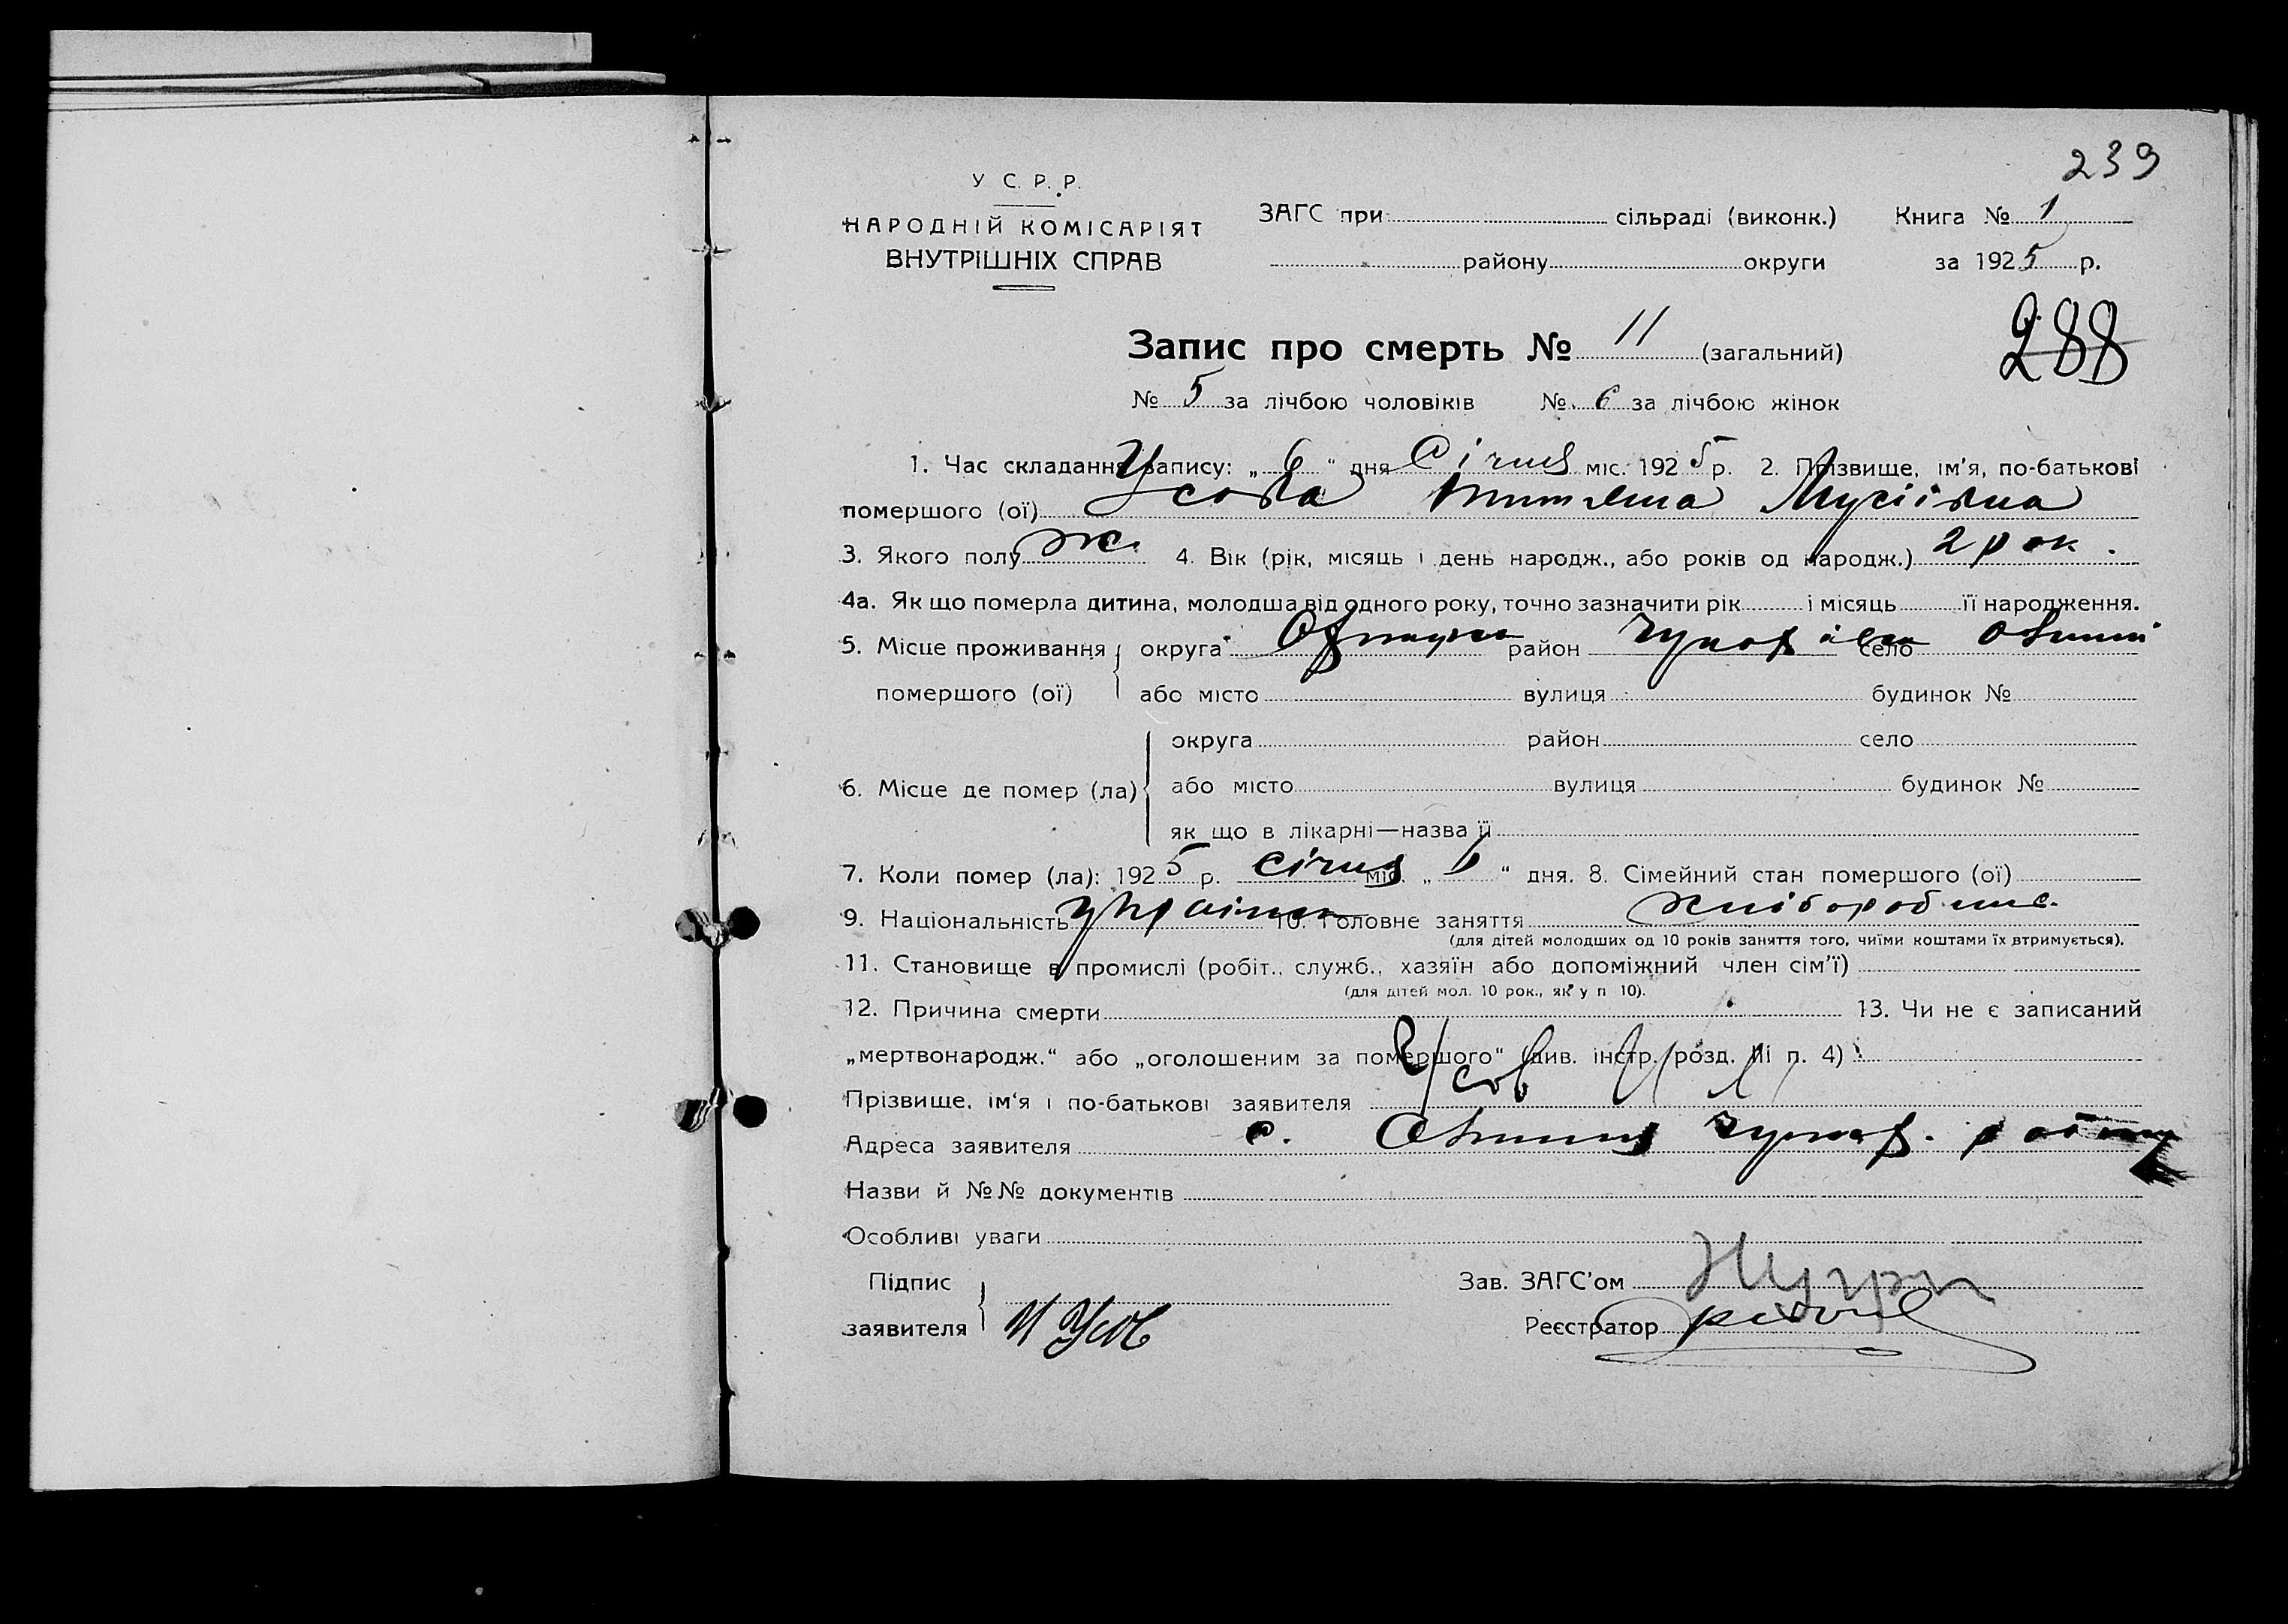 239
У С. Р. Р.
НАРОДНІЙ КОМІСАРІЯТ
ВНУТРІШНІХ СПРАВ
ЗАГС при сільраді (виконк.) Книга № 1
району округи за 1925 р.
Запис про смерть № 11 (загальний)
288
№ 5 за лічбою чоловіків № 6 за лічбою жінок
1. Час складання запису: „ 6 “ дня Січня міс. 1925 р. 2. Прізвище, ім'я, по-батькові
помершого (ої) Усова Мусіївна
3. Якого полу ж. 4. Вік (рік, місяць і день народж., або років од народж.) 2 рок.
4а. Як що померла дитина, молодша від одного року, точно зазначити рік і місяць її народження.
5. Місце проживання округа район село
помершого (ої) або місто вулиця будинок №
округа район село
6. Місце де помер (ла) або місто вулиця будинок №
як що в лікарні—назва її
7. Коли помер (ла): 1925 р. січня міс. „ “ дня. 8. Сімейний стан помершого (ої)
9. Національність українка 10. Головне заняття хліборобство
(для дітей молодших од 10 років заняття того, чиїми коштами їх втримується).
11. Становище в промислі (робіт., служб., хазяїн або допоміжний член сім'ї)
(для дітей мол. 10 рок., як у п 10).
12. Причина смерти 13. Чи не є записаний
„мертвонародж.“ або „оголошеним за помершого“ (див. інстр. розд. III п. 4)
Прізвище, ім'я і по-батькові заявителя Усов
Адреса заявителя с.
Назви й №№ документів
Особливі уваги
Підпис Зав. ЗАГС'ом
заявителя И Усов Реєстратор